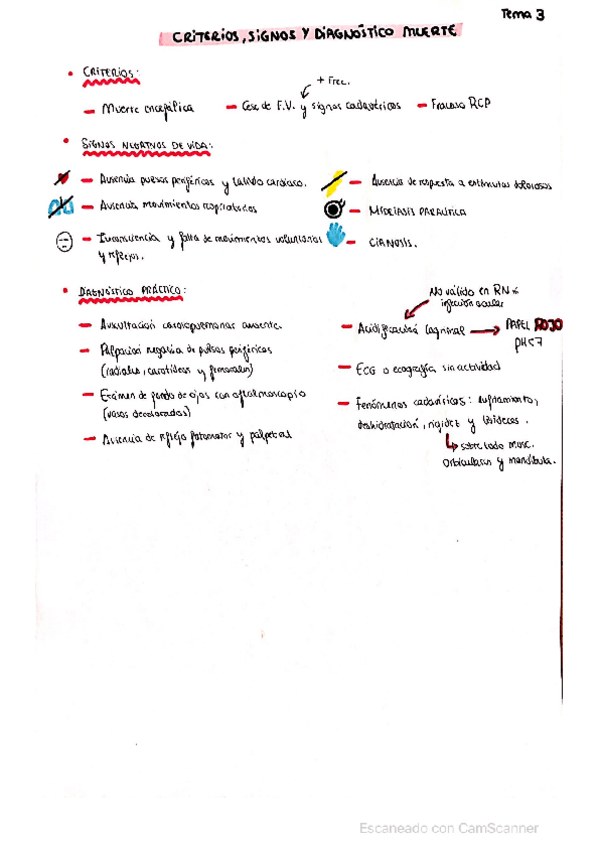 Tema 3
CRITERIOS, SIGNOS Y DIAGNÓSTICO MUERTE
• CRITERIOS:
+ Frec.
– Muerte encefálica – Cese de F.V. y signos cadavéricos – Fracaso RCP
• SIGNOS NEGATIVOS DE VIDA:
– Ausencia pulsos periféricos y latido cardiaco.
– Ausencia de respuesta a estímulos dolorosos
– Ausencia movimientos respiratorios
– MIDRIASIS PARALÍTICA
– Inconsciencia y falta de movimientos voluntarios
y reflejos.
– CIANOSIS.
• DIAGNÓSTICO PRÁCTICO:
– Auscultación cardiopulmonar ausente.
– Palpación negativa de pulsos periféricos
(radiales, carotídeos y femorales)
– Exámen de fondo de ojos con oftalmoscopio
(vasos decolorados)
– Ausencia de reflejo fotomotor y palpebral
No válido en RN e
infección ocular
– Acidificación lagrimal → PAPEL ROJO
pH<7
– ECG o ecografía sin actividad
– Fenómenos cadavéricos: enfriamiento,
deshidratación, rigidez y livideces.
↳ sobre todo musc.
orbicularis y mandíbula.
Escaneado con CamScanner